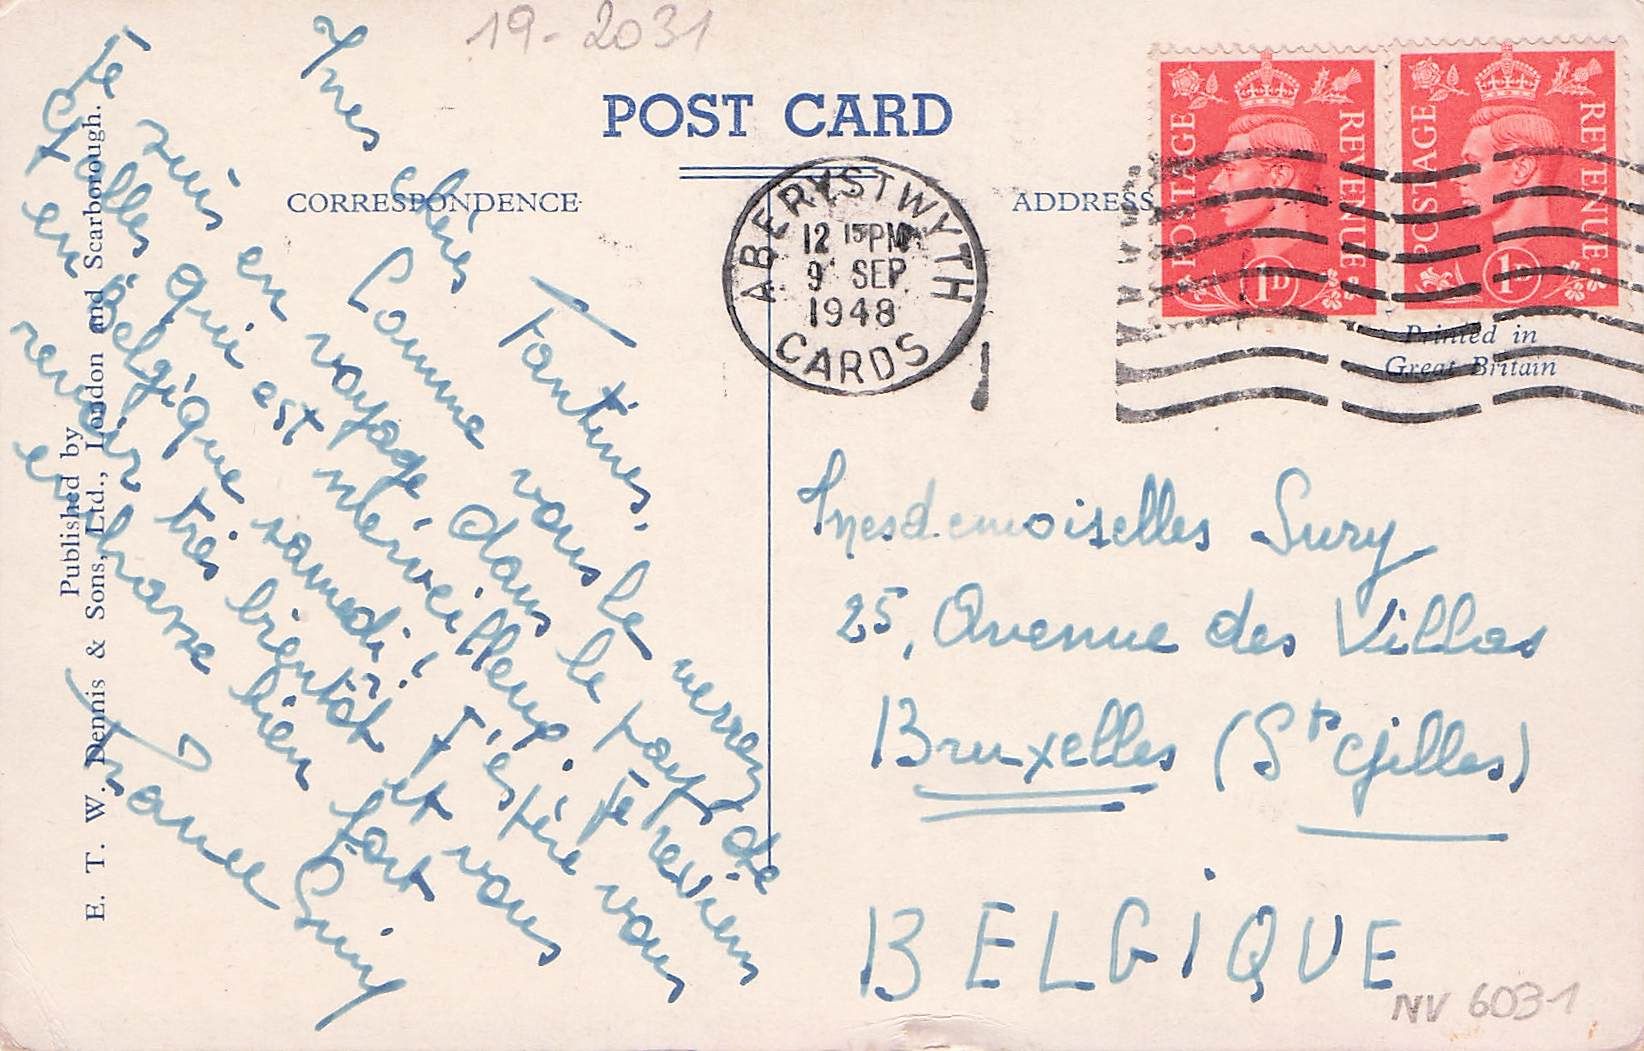 19-2031
POST CARD
CORRESPONDENCE
ADDRESS
Mes chères Tantines,
Comme vous le verrez
Je suis en voyage, dans le pays de
Galles qui est merveilleux. Je reviens
en Belgique samedi; J'espère vous
revoir très bientôt et vous
embrasse bien fort
France
Published by
E. T. W. Dennis & Sons, Ltd., London and Scarborough.
ABERYSTWYTH
12 15 PM
9 SEP
1948
CARDS
POSTAGE REVENUE
1D
POSTAGE REVENUE
1D
Printed in
Great Britain
Mesdemoiselles Sury
25, Avenue des Villas
Bruxelles (St Gilles)
BELGIQUE
NV 603-1